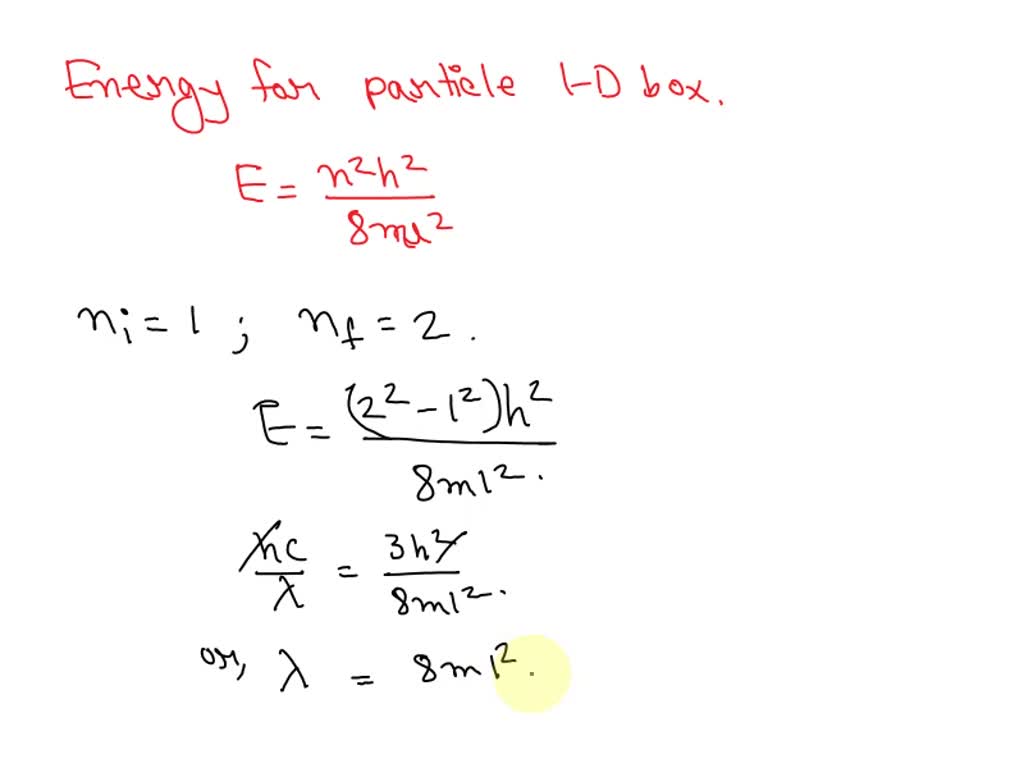 Energy for particle 1-D box.
E = n²h² / 8ml²
nᵢ = 1 ; n_f = 2 .
E = (2² - 1²)h² / 8ml² .
hc / λ = 3h² / 8ml² .
or, λ = 8ml² .